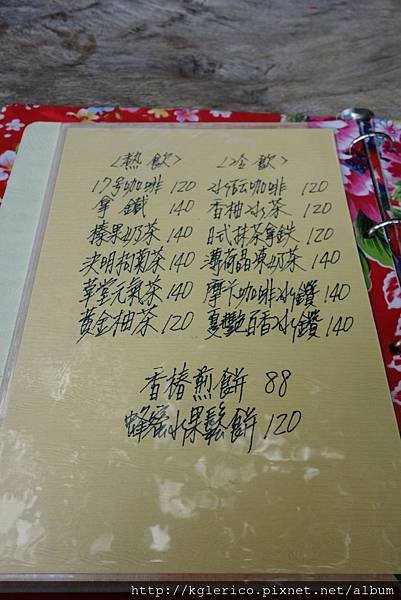 <熱飲> <冷飲>
17号咖啡 120 冰砖咖啡 120
拿鐵 140 香柚冰茶 140
榛果奶茶 140 日式抹茶拿鉄 120
決明松菊茶 140 薄荷晶凍奶茶 140
草堂元氣茶 140 摩卡咖啡冰鑽 140
黃金柚茶 120 夏艷百香冰鑽 140
香椿煎餅 88
蜂蜜水果鬆餅 120
http://kglerico.pixnet.net/album